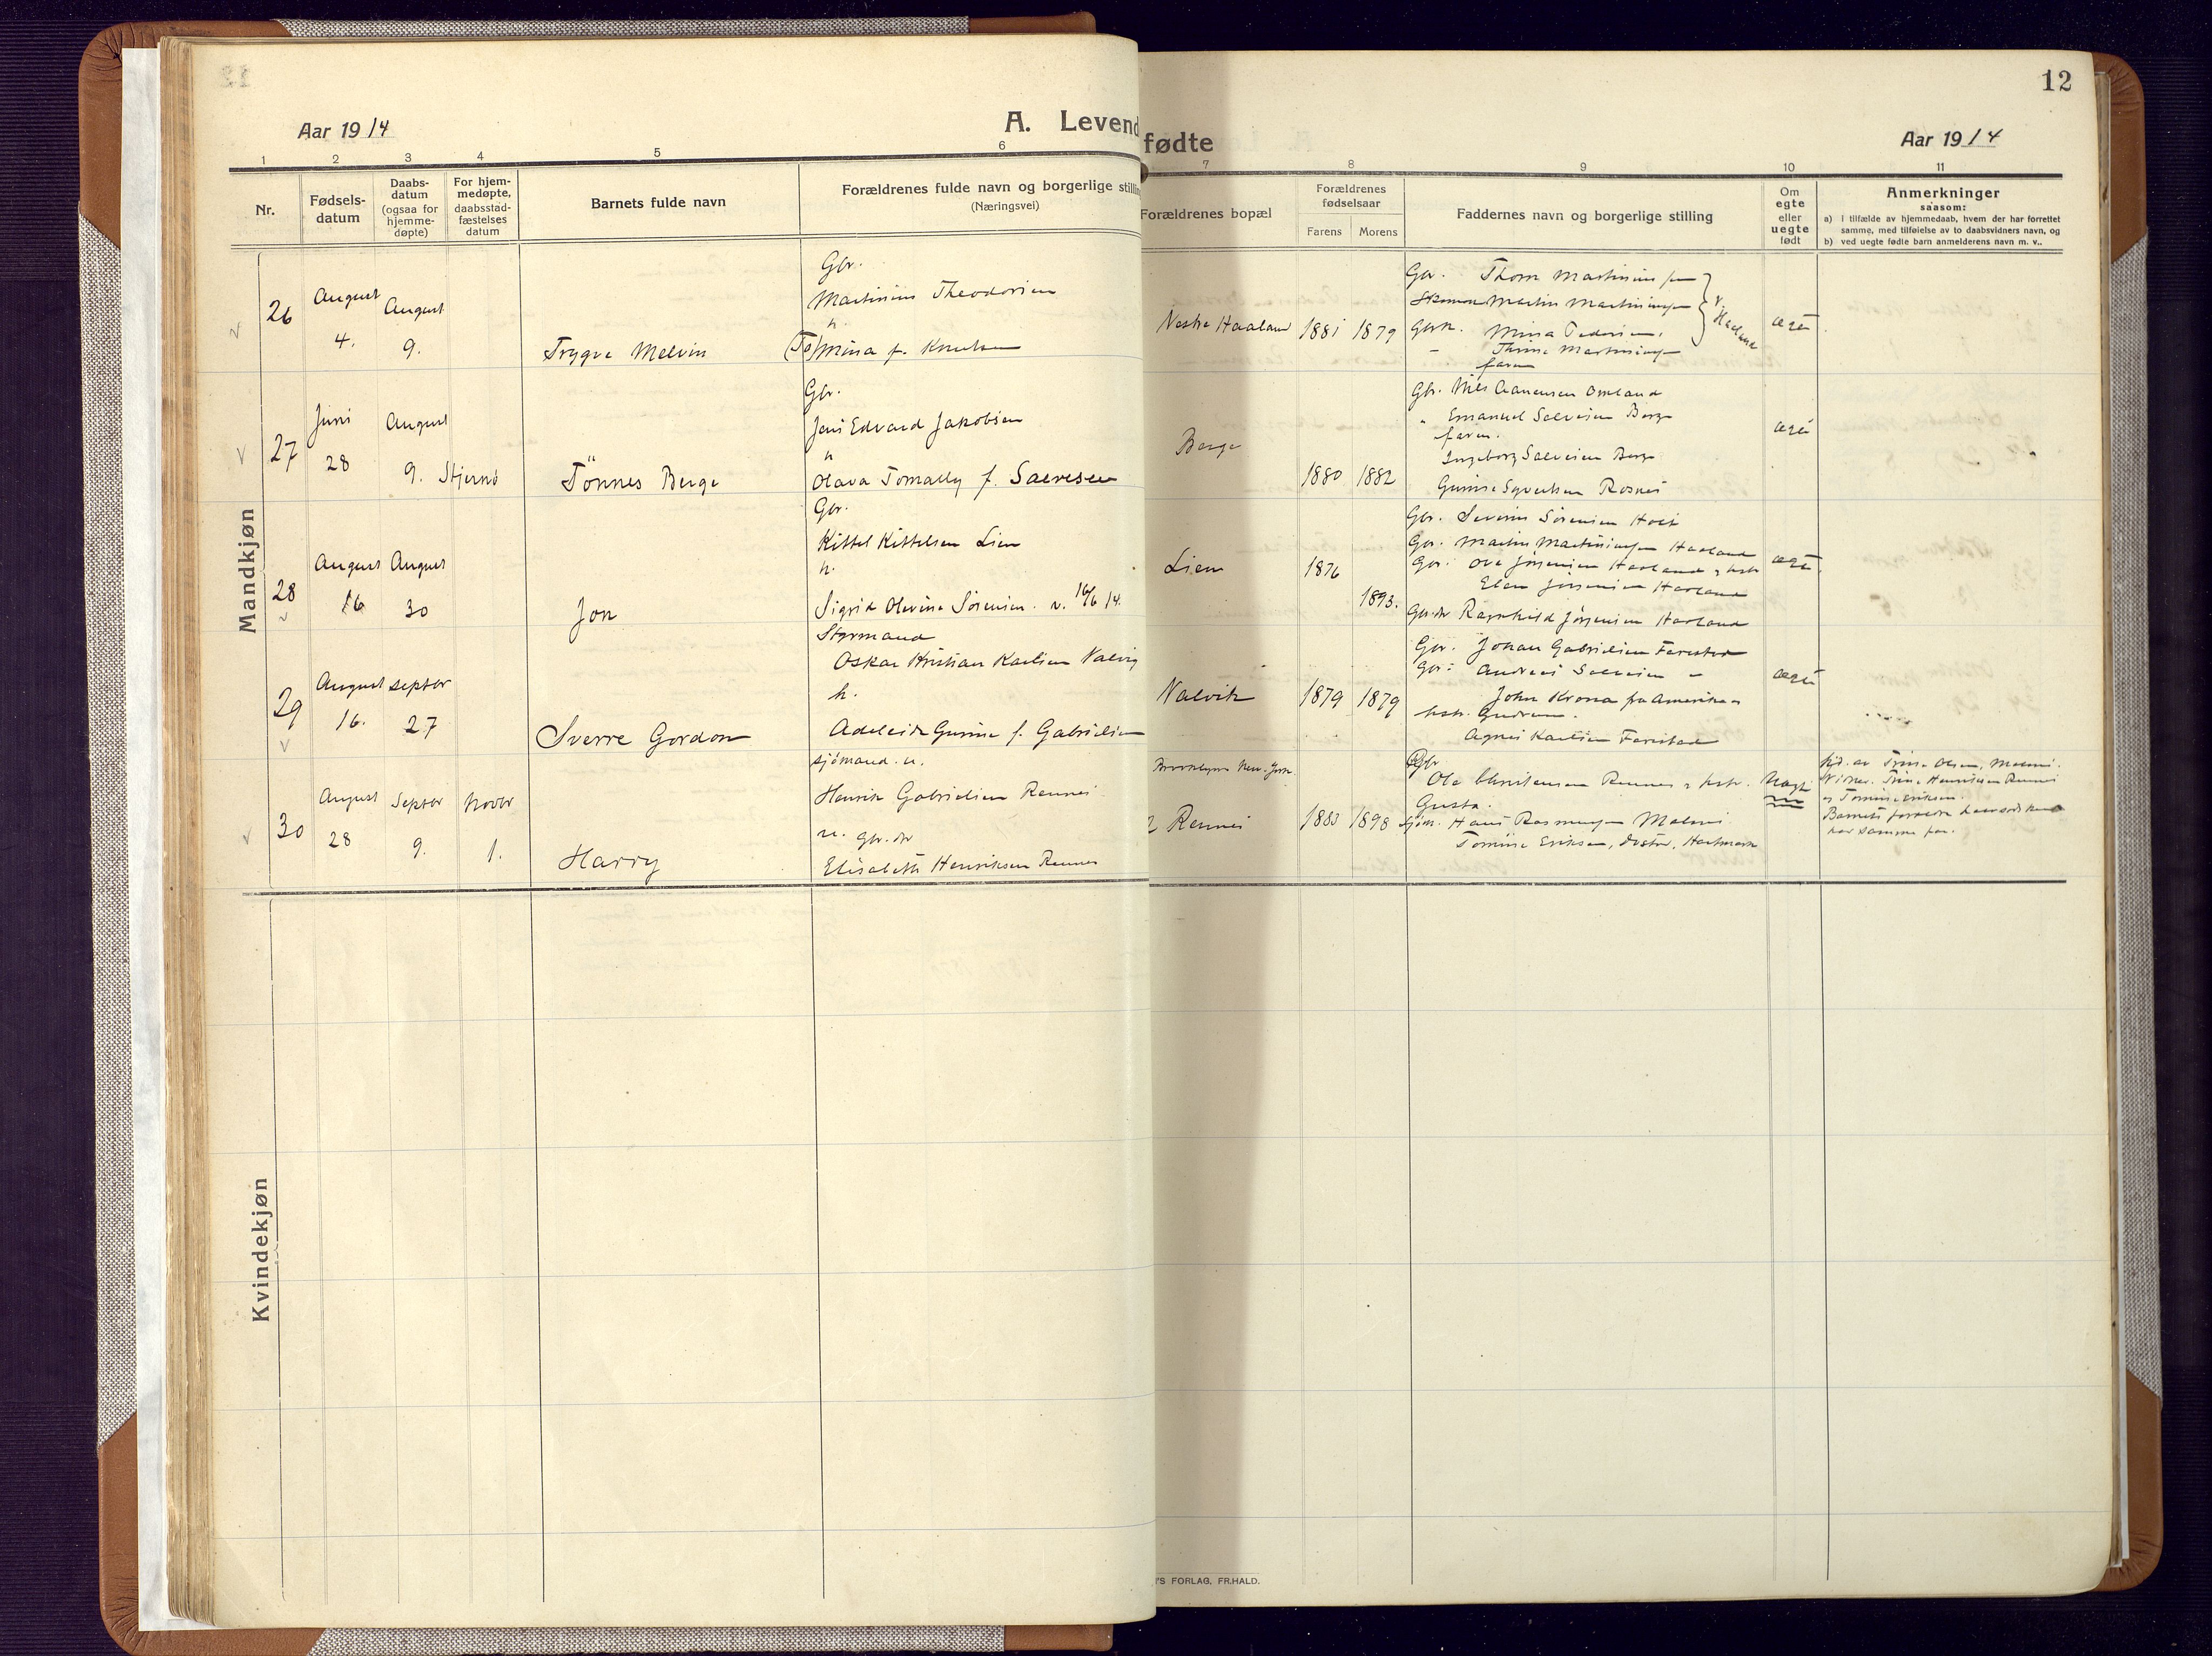 12
Aar 1914
A. Levend
fødte
Aar 1914
1 2 3 4 5 6 7 8 9 10 11
Nr.
Fødsels-
datum
Daabs-
datum
(ogsaa for
hjemme-
døpte)
For hjem-
medøpte,
daabsstad-
fæstelses
datum
Barnets fulde navn
Forældrenes fulde navn og borgerlige stillin
(Næringsvei)
Forældrenes bopæl
Forældrenes
fødselsaar
Farens Morens
Faddernes navn og borgerlige stilling
Om
egte
eller
uegte
født
Anmerkninger
saasom:
a) i tilfælde av hjemmedaab, hvem der har forrettet
samme, med tilføielse av to daabsvidners navn, og
b) ved uegte fødte barn anmelderens navn m. v..
Mandkjøn
26
August
4.
August
9.
Trygve Melvin
Gbr.
Martinius Theodorsen
h.
(To)mina f. Knudsen
Vestre Haaland
1881 1879
Gbr. Thom Martinius
Martin Martiniussen
Mina Pedersen
Thrine Martiniussen
faren
v. Haaland
ægte
27
Juni
28
August
9.
Stjernø
Tönnes Berge
Gbr.
Jens Edvard Jakobsen
h
Olava Tomally f. Salvesen
Berge
1880 1882
Gbr. Nils Aanensen Omland
" Emanuel Salvesen Berge
faren.
Ingeborg Salvesen Berge
Gunine Syvertsen Rosnes
ægte
28
August
16
August
30
Jon
Gbr.
Kittel Kittelsen Lien
h.
Sigrid Olevine Sörensen. v. 16/6 14.
Lien
1876
1893.
Gbr. Severin Sörensen
Gbr. Martin Martiniussen Haaland
Gbr. Ove Jörgensen Haaland og hstr
Elen Jörgensen Haaland
Gbr.dr Ragnhild Jörgensen Haaland
ægte
29
August
16.
Septbr
27
Sverre Gordon
Styrmand
Oskar Kristian Karlsen Valvig
h.
Adeleide Gurine f. Gabrielsen
Valvik
1879 1879
Gbr. Johan Gabrielsen Farestad
Gbr. Andreas Salvesen "
John Krona fra Amerika og
hstr. Gudrun.
Agnes Karlsen Farestad
ægte
30
August
28
Septbr
9.
Novbr
1.
Harry
sjömand. u.
Henrik Gabrielsen Rennes
u. gbr. dr
Elisabeth Henriksen Rennes
Brooklyn New-York.
Rennes
1883 1898
Gbr
Ole Christensen Rennes og hstr.
Gusta.
sjöm. Hans Rasmussen
Tomine Eriksen, Hartmark
uægte
hjd. av Trine Olsen,
Vidner. Trine Henriksen Rennes
og Tomine Eriksen.
Barnets forældre
har samme far.
Kvindekjøn
'S FORLAG, FR.HALD.